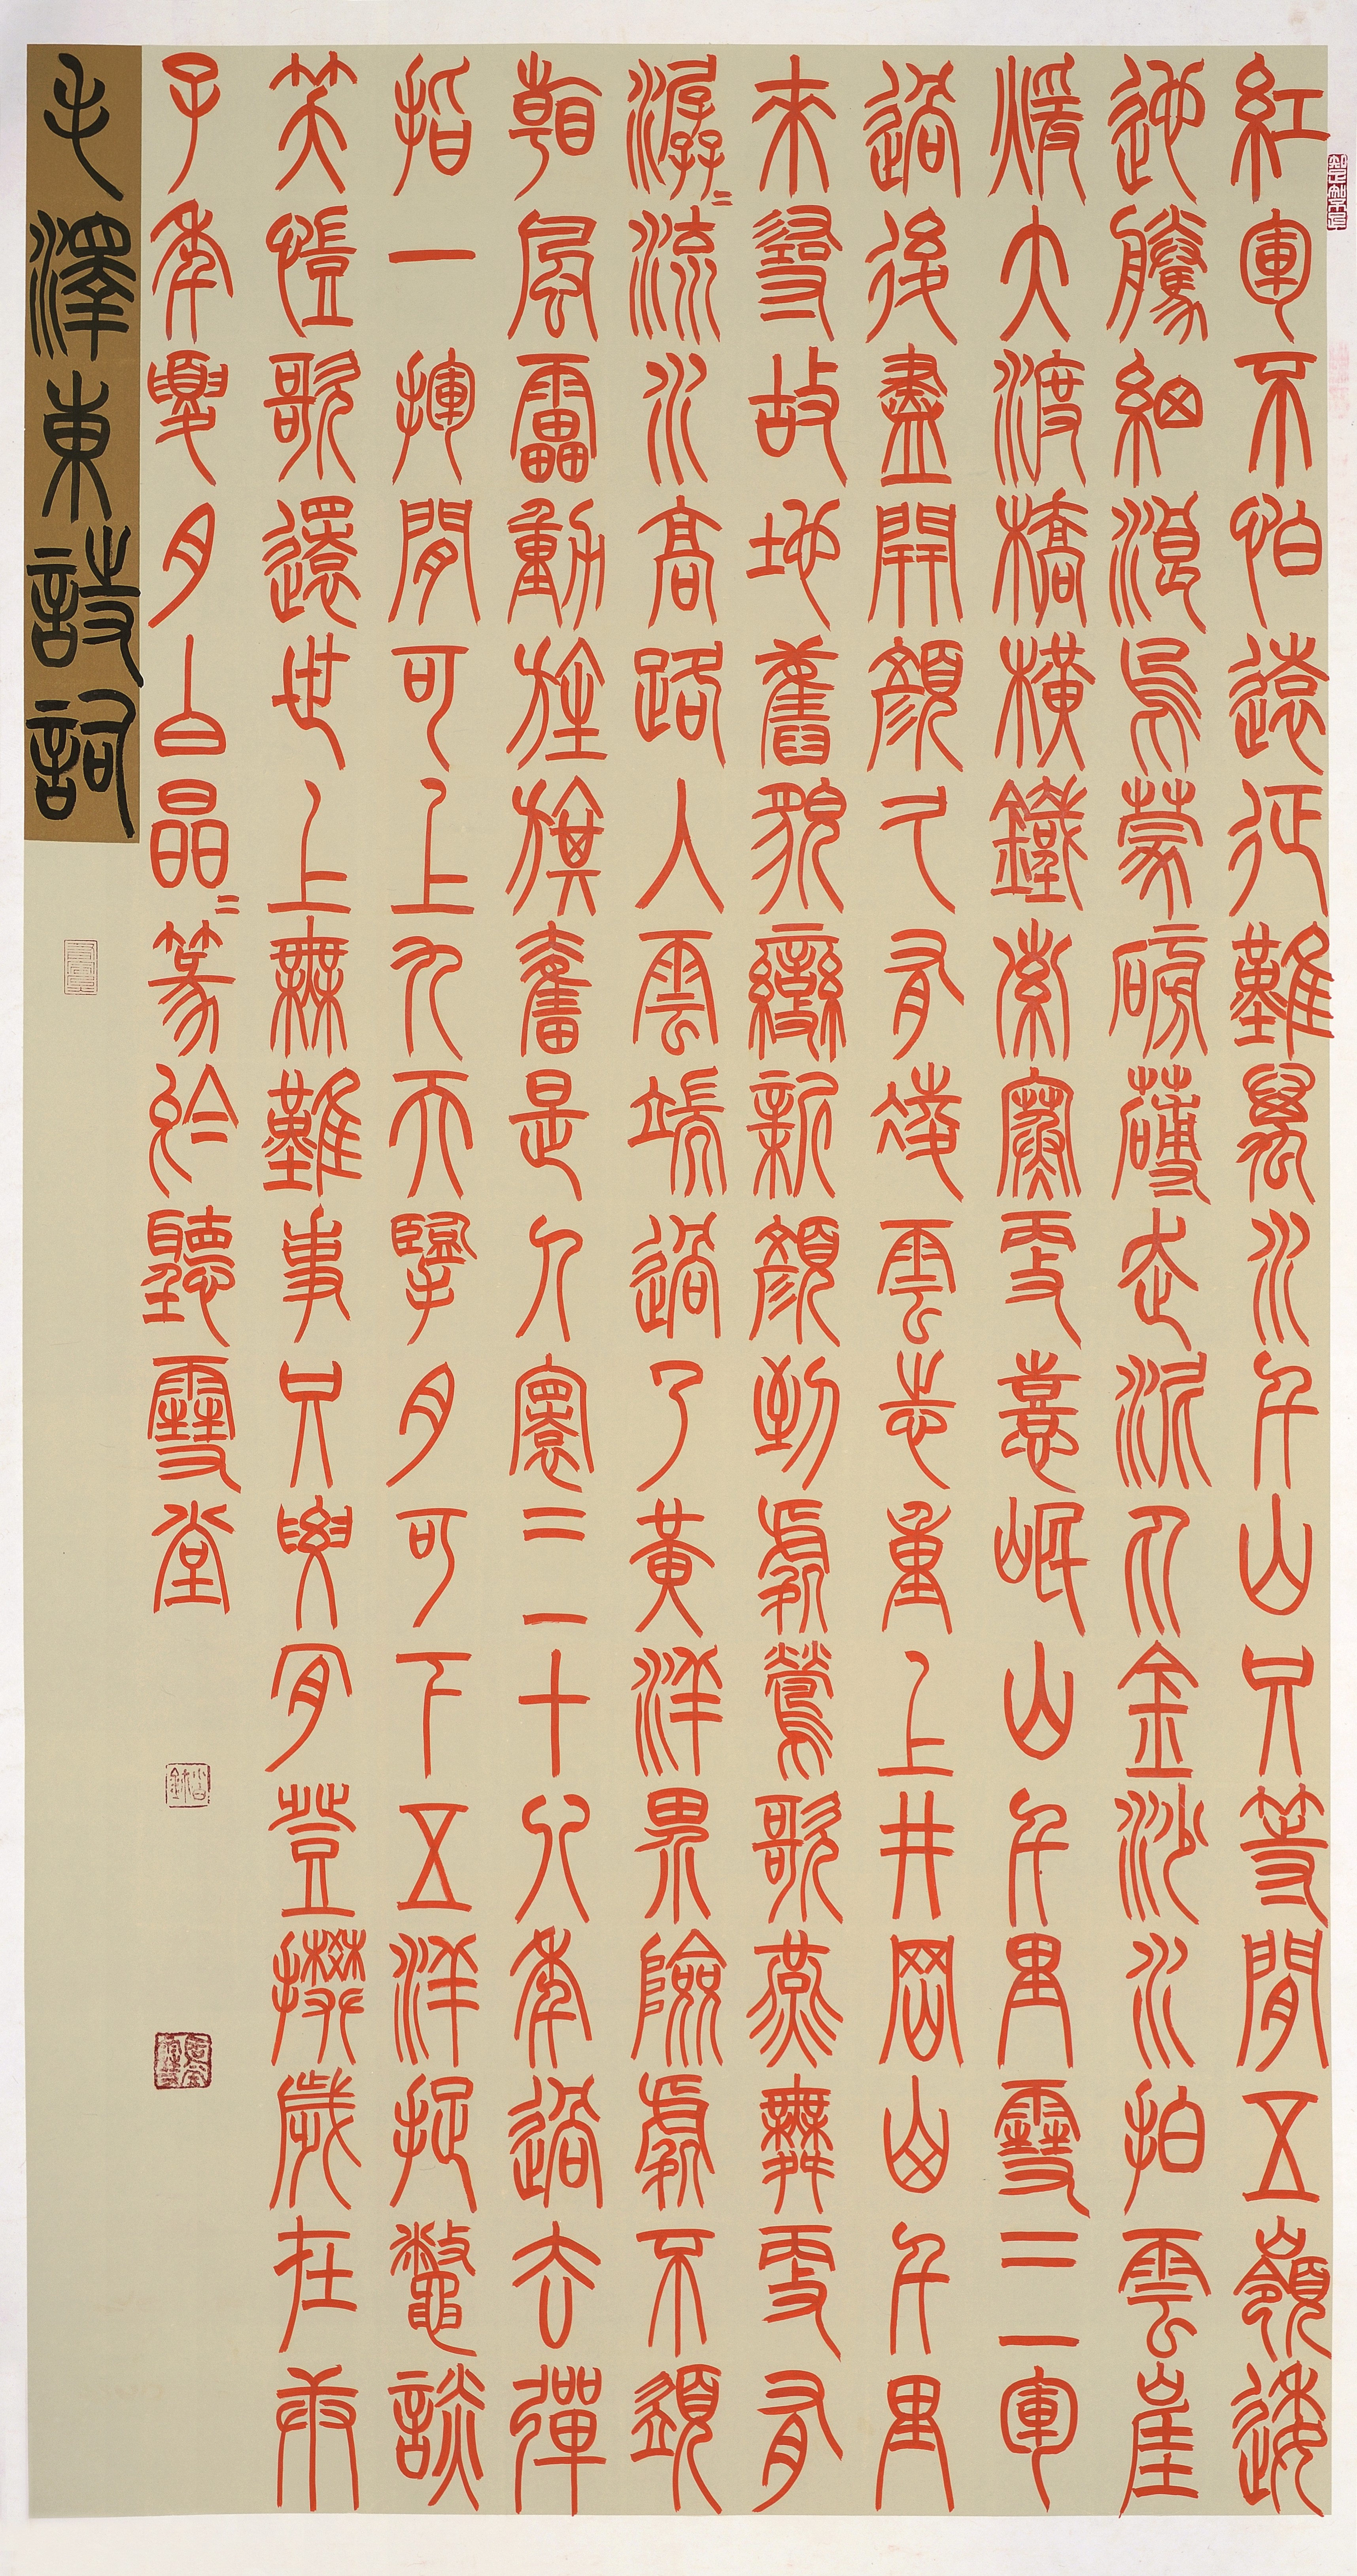 紅軍不怕遠征難萬水千山只等閒五嶺逶
迤騰細浪烏蒙磅礴走泥丸金沙水拍雲崖
煖大渡橋橫鐵索寒更喜岷山千里雪三軍
過後盡開顏久有凌雲志重上井岡山千里
來尋故地舊貌變新顏到處鶯歌燕舞更有
潺〻流水高路入雲端過了黃洋界險處不須
看風雷動旌旗奮是人寰三十八年過去彈
指一揮閒可上九天擥月可下五洋捉鱉談
笑愷歌還世上無難事只要肯登攀歲在庚
子年夏月白晶〻篆於聽雪堂
毛澤東詩詞